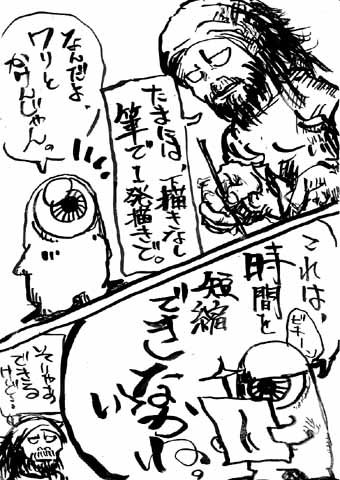 たまには、下描きなし
筆で1発描きで。
なんだよ、
ワリと
かけんじゃん。
これは、
時間を
短縮
できな
ね。
ビキーン
そりゃあ
できる
けど…